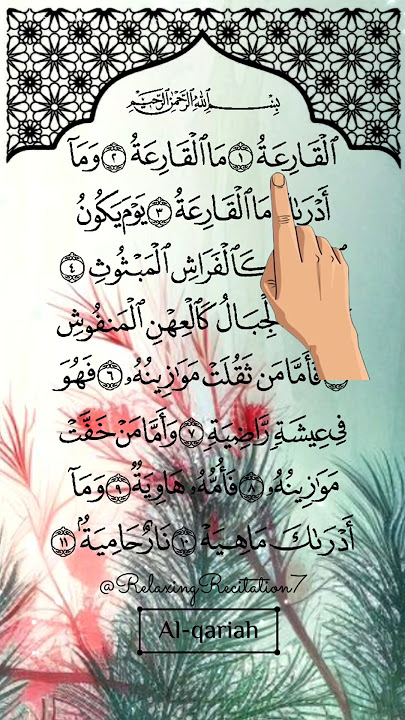 بِسْمِ ٱللَّهِ ٱلرَّحْمَٰنِ ٱلرَّحِيمِ
ٱلْقَارِعَةُ ١ مَا ٱلْقَارِعَةُ ٢ وَمَآ
مَا ٱلْقَارِعَةُ ٣ يَوْمَ يَكُونُ
كَٱلْفَرَاشِ ٱلْمَبْثُوثِ ٤
ٱلْجِبَالُ كَٱلْعِهْنِ ٱلْمَنفُوشِ
فَأَمَّا مَن ثَقُلَتْ مَوَٰزِينُهُۥ ٦ فَهُوَ
فِى عِيشَةٍ رَّاضِيَةٍ ٧ وَأَمَّا مَنْ خَفَّتْ
مَوَٰزِينُهُۥ ٨ فَأُمُّهُۥ هَاوِيَةٌ ٩ وَمَآ
أَدْرَىٰكَ مَا هِيَهْ ١٠ نَارٌ حَامِيَةٌۢ ١١
@RelaxingRecitation7
Al-qariah